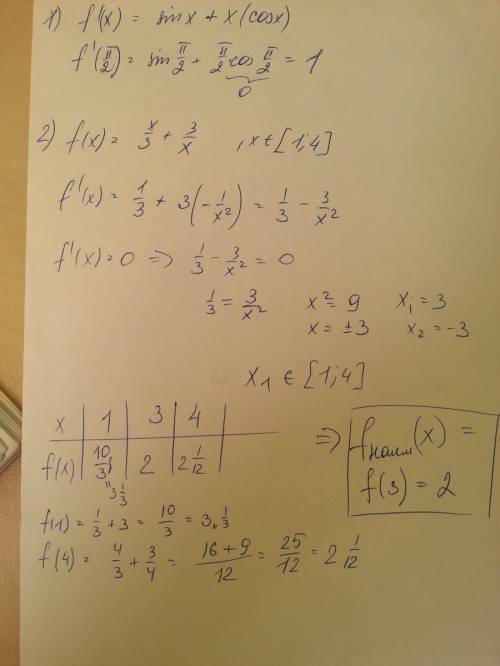 1) f'(x) = sin x + x (cos x)
f'(π/2) = sin π/2 + π/2 cos π/2 = 1
0
2) f(x) = x/3 + 3/x , x ∈ [1; 4]
f'(x) = 1/3 + 3(-1/x²) = 1/3 - 3/x²
f'(x) = 0 => 1/3 - 3/x² = 0
1/3 = 3/x² x² = 9 x₁ = 3
x = ±3 x₂ = -3
x₁ ∈ [1; 4]
x | 1 | 3 | 4 |
f(x) | 10/3 | 2 | 2 1/12 |
" 3 1/3
=> fнаим(x) =
f(3) = 2
f(1) = 1/3 + 3 = 10/3 = 3 1/3
f(4) = 4/3 + 3/4 = (16+9)/12 = 25/12 = 2 1/12